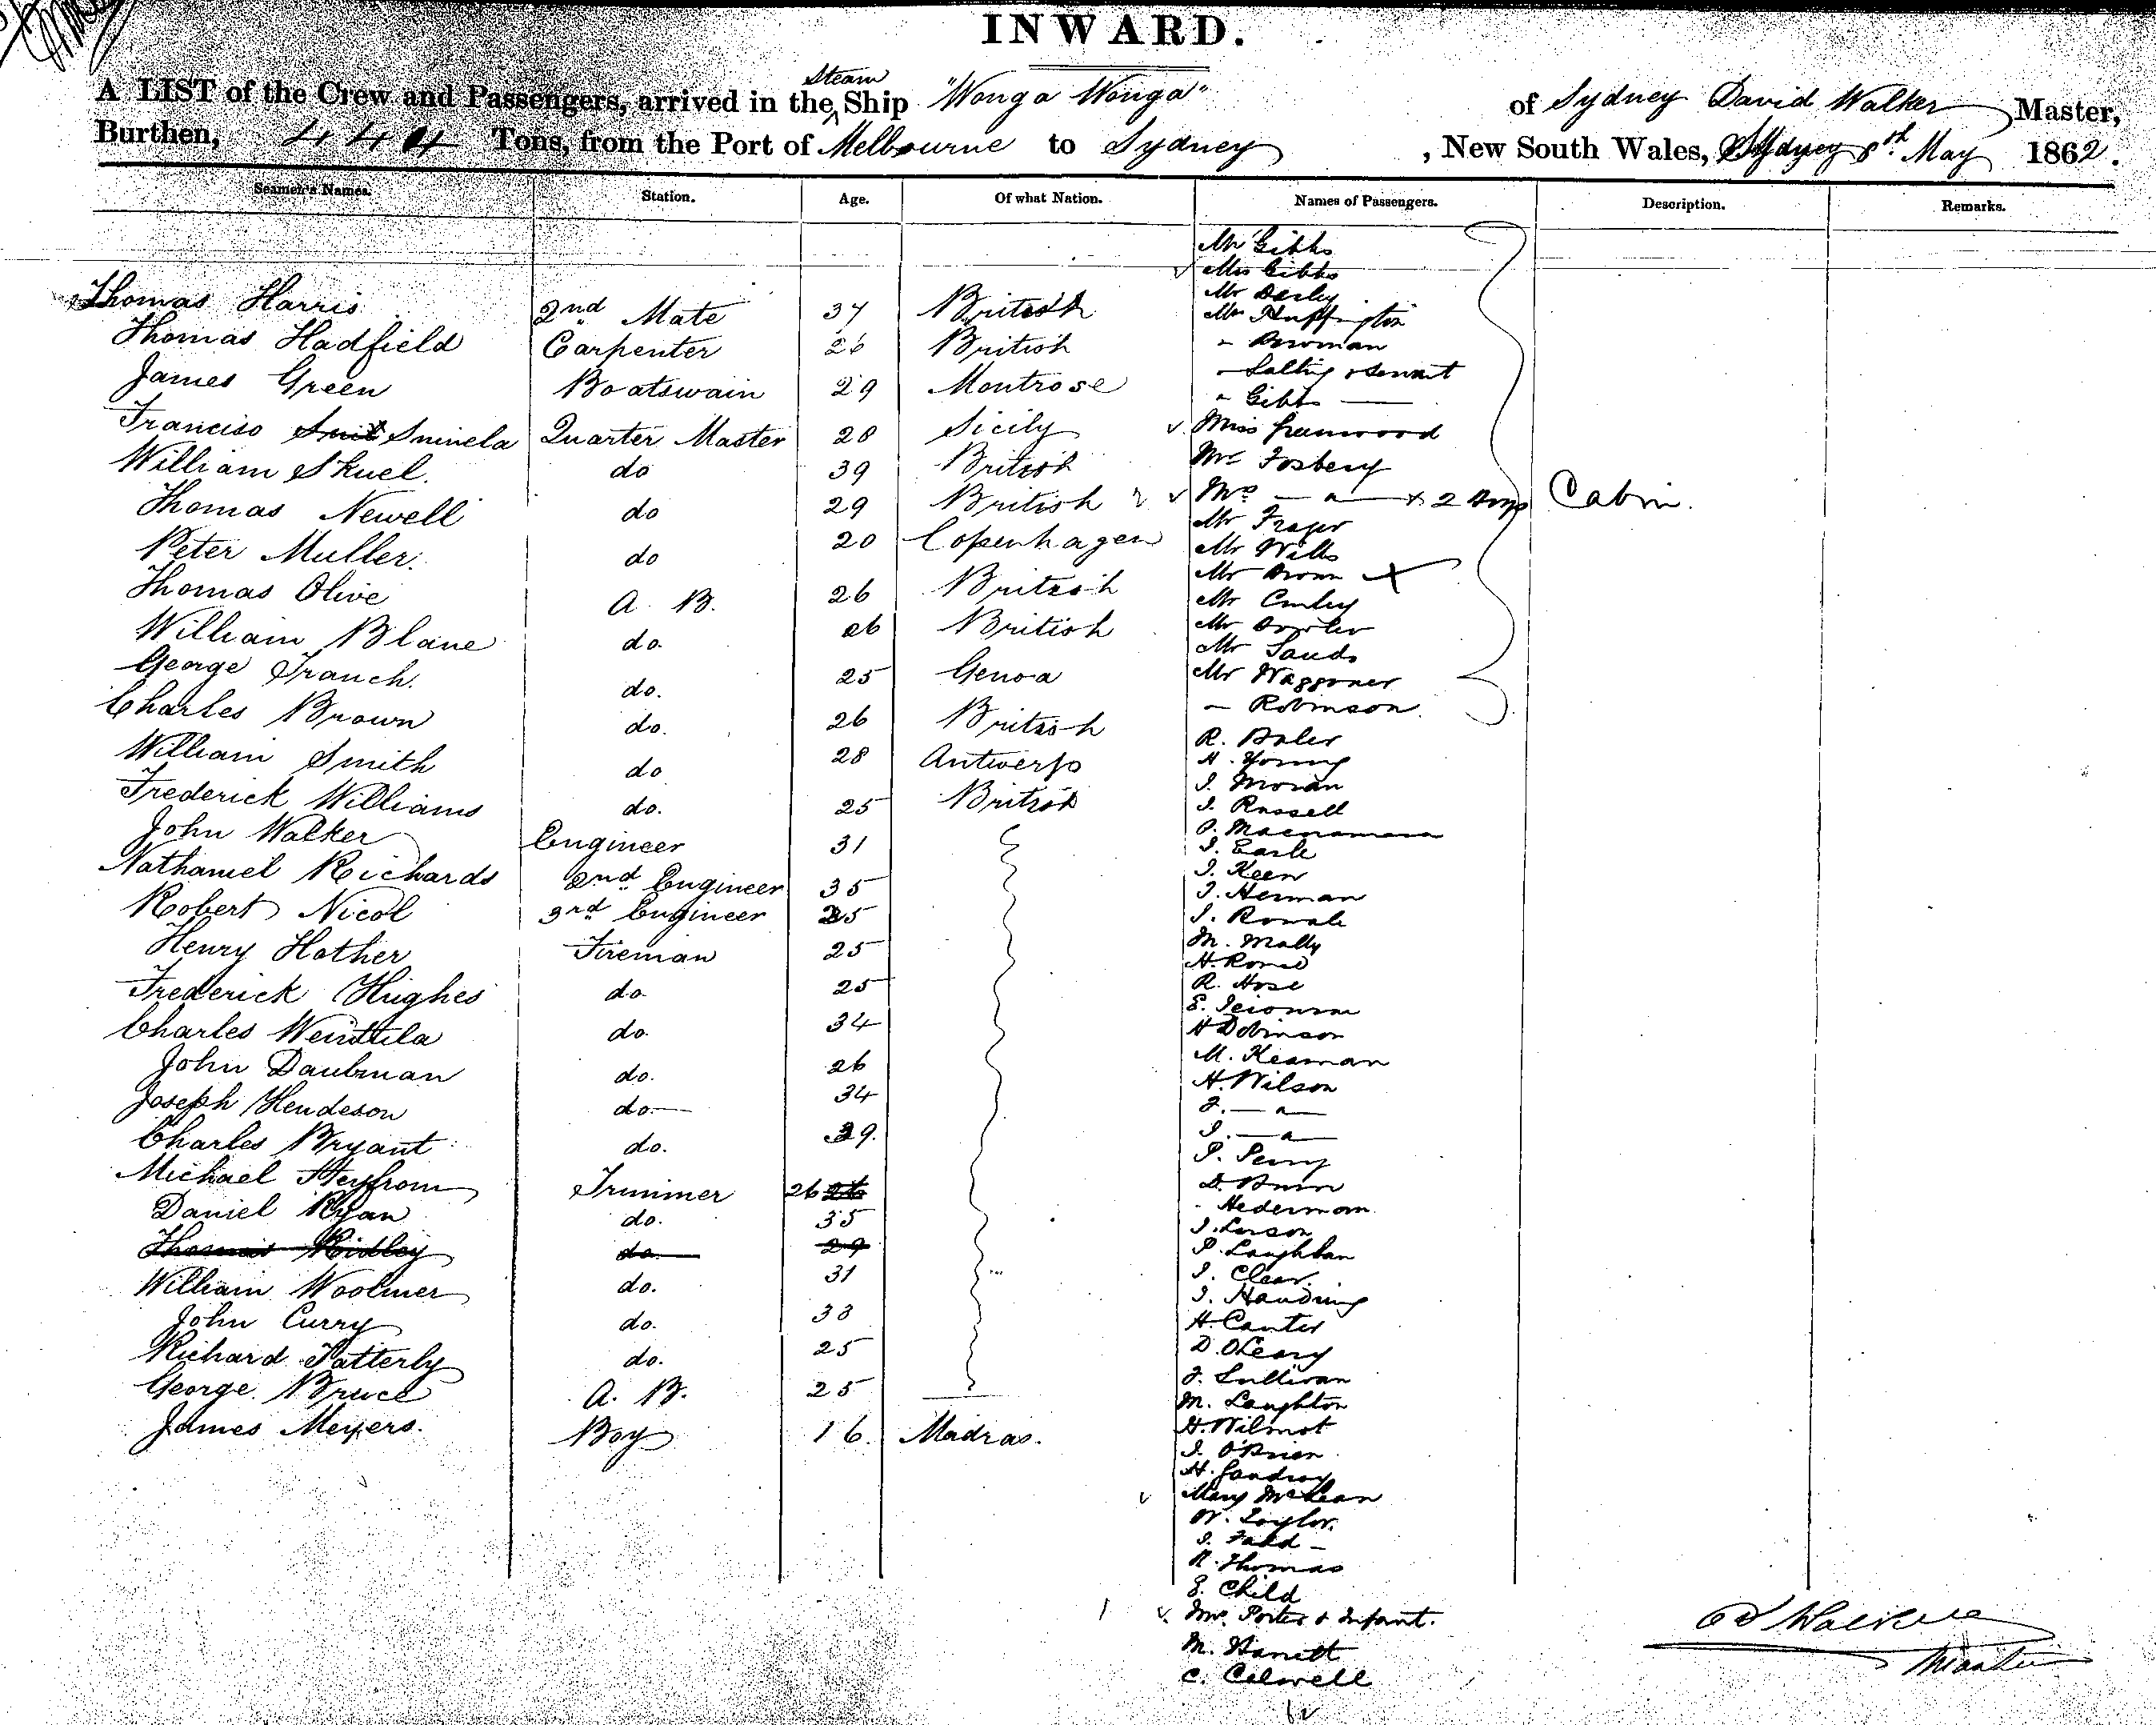 INWARD.
A LIST of the Crew and Passengers, arrived in the Steam Ship "Wonga Wonga" of Sydney David Walker Master,
Burthen, Tons, from the Port of Melbourne to Sydney, New South Wales, Sydney 8th May 1862.
Seamen's Names. Station. Age. Of what Nation. Names of Passengers. Description. Remarks.
Mr Gibbs
Mrs Gibbs
Mr Darley
Thomas Harris 2nd Mate 37 British Mr Huffington
Thomas Hadfield Carpenter 26 British " Bowman
James Green Boatswain 29 Montrose " Salting & servant
" Gibbs
Francisco Quarter Master 28 Sicily Miss Greenwood
William Skuel. do 39 British Mr Fosbery
Thomas Newell do 29 British Mrs — " — & 2 Cabin.
Peter Muller. do 20 Copenhagen Mr Frazer
Mr Wills
Thomas Olive A. B. 26 British Mr Brown
Mr
William Blane do. 26 British Mr
Mr Sands
George Tranch. do. 25 Genoa Mr Waggoner
Charles Brown do. 26 British — Robinson.
R.
William Smith do 28 Antwerp H. Young
J. Moran
Frederick Williams do. 25 British J. Russell
P. Macnamara
John Walker Engineer 31 J. Earle
Nathaniel Richards 2nd Engineer 35 J. Keen
Robert Nicol 3rd Engineer 25 J. Herman
J.
Henry Hother Fireman 25 M. Mally
H.
Frederick Hughes do. 25 R. Hose
E.
Charles Wendtila do. 34 H Dobinson
John Daubman do. 26 M. Keaman
H. Wilson
Joseph Hendeson do. 34 J. — " —
Charles Bryant do. 29. J. — " —
P. Perry
Michael Heyfrom Trimmer 26 26 D.
Daniel Ryan do. 35 Hederman
J. Larson
Thomas Ridley do. 29 P. Laughlan
William Woolmer do. 31 J. Clear.
J.
John Curry do. 33 H. Canter
Richard Tatterly do. 25 D. OLeary
J. Sullivan
George Bruce A. B. 25 M. Laughton
James Meyers. Boy 16. Madras. H. Wilmot
J. O'Brien
H.
Mary McLean
W. Taylor.
J.
R. Thomas
E. Child
Mrs. Porter & Infant.
M.
C. Calwell
D Walker
Master